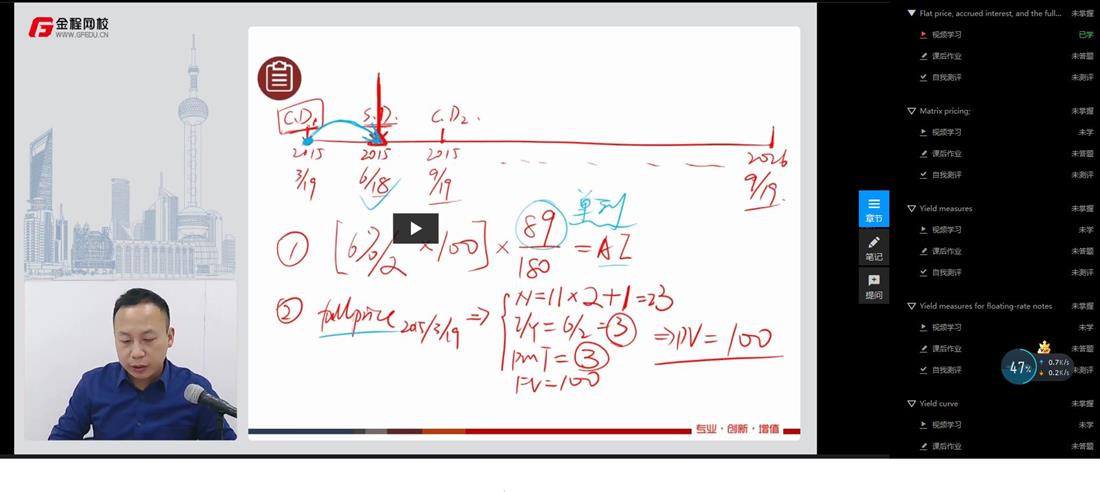 金程网校
WWW.GFEDU.CN
C.D₁ S.D. C.D₂.
2015 2015 2015 2026
3/19 6/18 9/19 9/19.
单列
① [6%/2 ×100] × 89/180 = AI
② full price 2015/3/19 ⇒ N=11×2+1=23
I/Y=6/2=3 ⇒PV=100
PMT=3
FV=100
专业·创新·增值
章节
笔记
提问
Flat price, accrued interest, and the full... 未掌握
视频学习 已学
课后作业 未答题
自我测评 未测评
Matrix pricing; 未掌握
视频学习 未学
课后作业 未答题
自我测评 未测评
Yield measures 未掌握
视频学习 未学
课后作业 未答题
自我测评 未测评
Yield measures for floating-rate notes 未掌握
视频学习 未学
课后作业 未答题
自我测评 未测评
47% 0.7K/s
0.2K/s
Yield curve 未掌握
视频学习 未学
课后作业 未答题